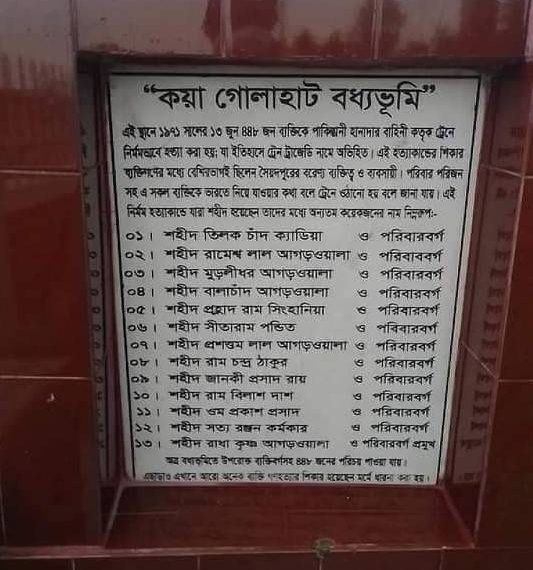 “কয়া গোলাহাট বধ্যভূমি”
এই স্থানে ১৯৭১ সালের ১৩ জুন ৪৪৮ জন ব্যক্তিকে পাকিস্তানী হানাদার বাহিনী কতৃক ট্রেনে
নির্মমভাবে হত্যা করা হয়; যা ইতিহাসে ট্রেন ট্রাজেডি নামে অভিহিত। এই হত্যাকান্ডের শিকার
ব্যক্তিগণের মধ্যে বেশিরভাগই ছিলেন সৈয়দপুরের বরেণ্য ব্যক্তিত্ব ও ব্যবসায়ী। পরিবার পরিজন
সহ এ সকল ব্যক্তিকে ভারতে নিয়ে যাওয়ার কথা বলে ট্রেনে ওঠানো হয় বলে জানা যায়। এই
নির্মম হত্যাকান্ডে যারা শহীদ হয়েছেন তাদের মধ্যে অন্যতম কয়েকজনের নাম নিম্নরূপঃ-
০১। শহীদ তিলক চাঁদ ক্যাডিয়া ও পরিবারবর্গ
০২। শহীদ রামেশ্ব লাল আগড়ওয়ালা ও পরিবাববর্গ
০৩। শহীদ মুড়লীধর আগড়ওয়ালা ও পরিবারবর্গ
০৪। শহীদ বালাচাঁদ আগড়ওয়ালা ও পরিবারবর্গ
০৫। শহীদ প্রহ্লাদ রাম সিংহানিয়া ও পরিবারবর্গ
০৬। শহীদ সীতারাম পন্ডিত ও পবিবারবর্গ
০৭। শহীদ প্রশত্তম লাল আগড়ওয়ালা ও পরিবারবর্গ
০৮। শহীদ রাম চন্দ্র ঠাকুর ও পরিবারবর্গ
০৯। শহীদ জানকী প্রসাদ রায় ও পরিবারবর্গ
১০। শহীদ রাম বিলাশ দাশ ও পরিবারবর্গ
১১। শহীদ ওম প্রকাশ প্রসাদ ও পরিবারবর্গ
১২। শহীদ সত্য রঞ্জন কর্মকার ও পরিবারবর্গ
১৩। শহীদ রাধা কৃষ্ণ আগড়ওয়ালা ও পরিবারবর্গ প্রমুখ
অত্র বধ্যভূমিতে উপরোক্ত ব্যক্তিবর্গসহ ৪৪৮ জনের পরিচয় পাওয়া যায়।
এছাড়াও এখানে আরো অনেক ব্যক্তি গণহত্যার শিকার হয়েছেন মর্মে ধারনা করা হয়।